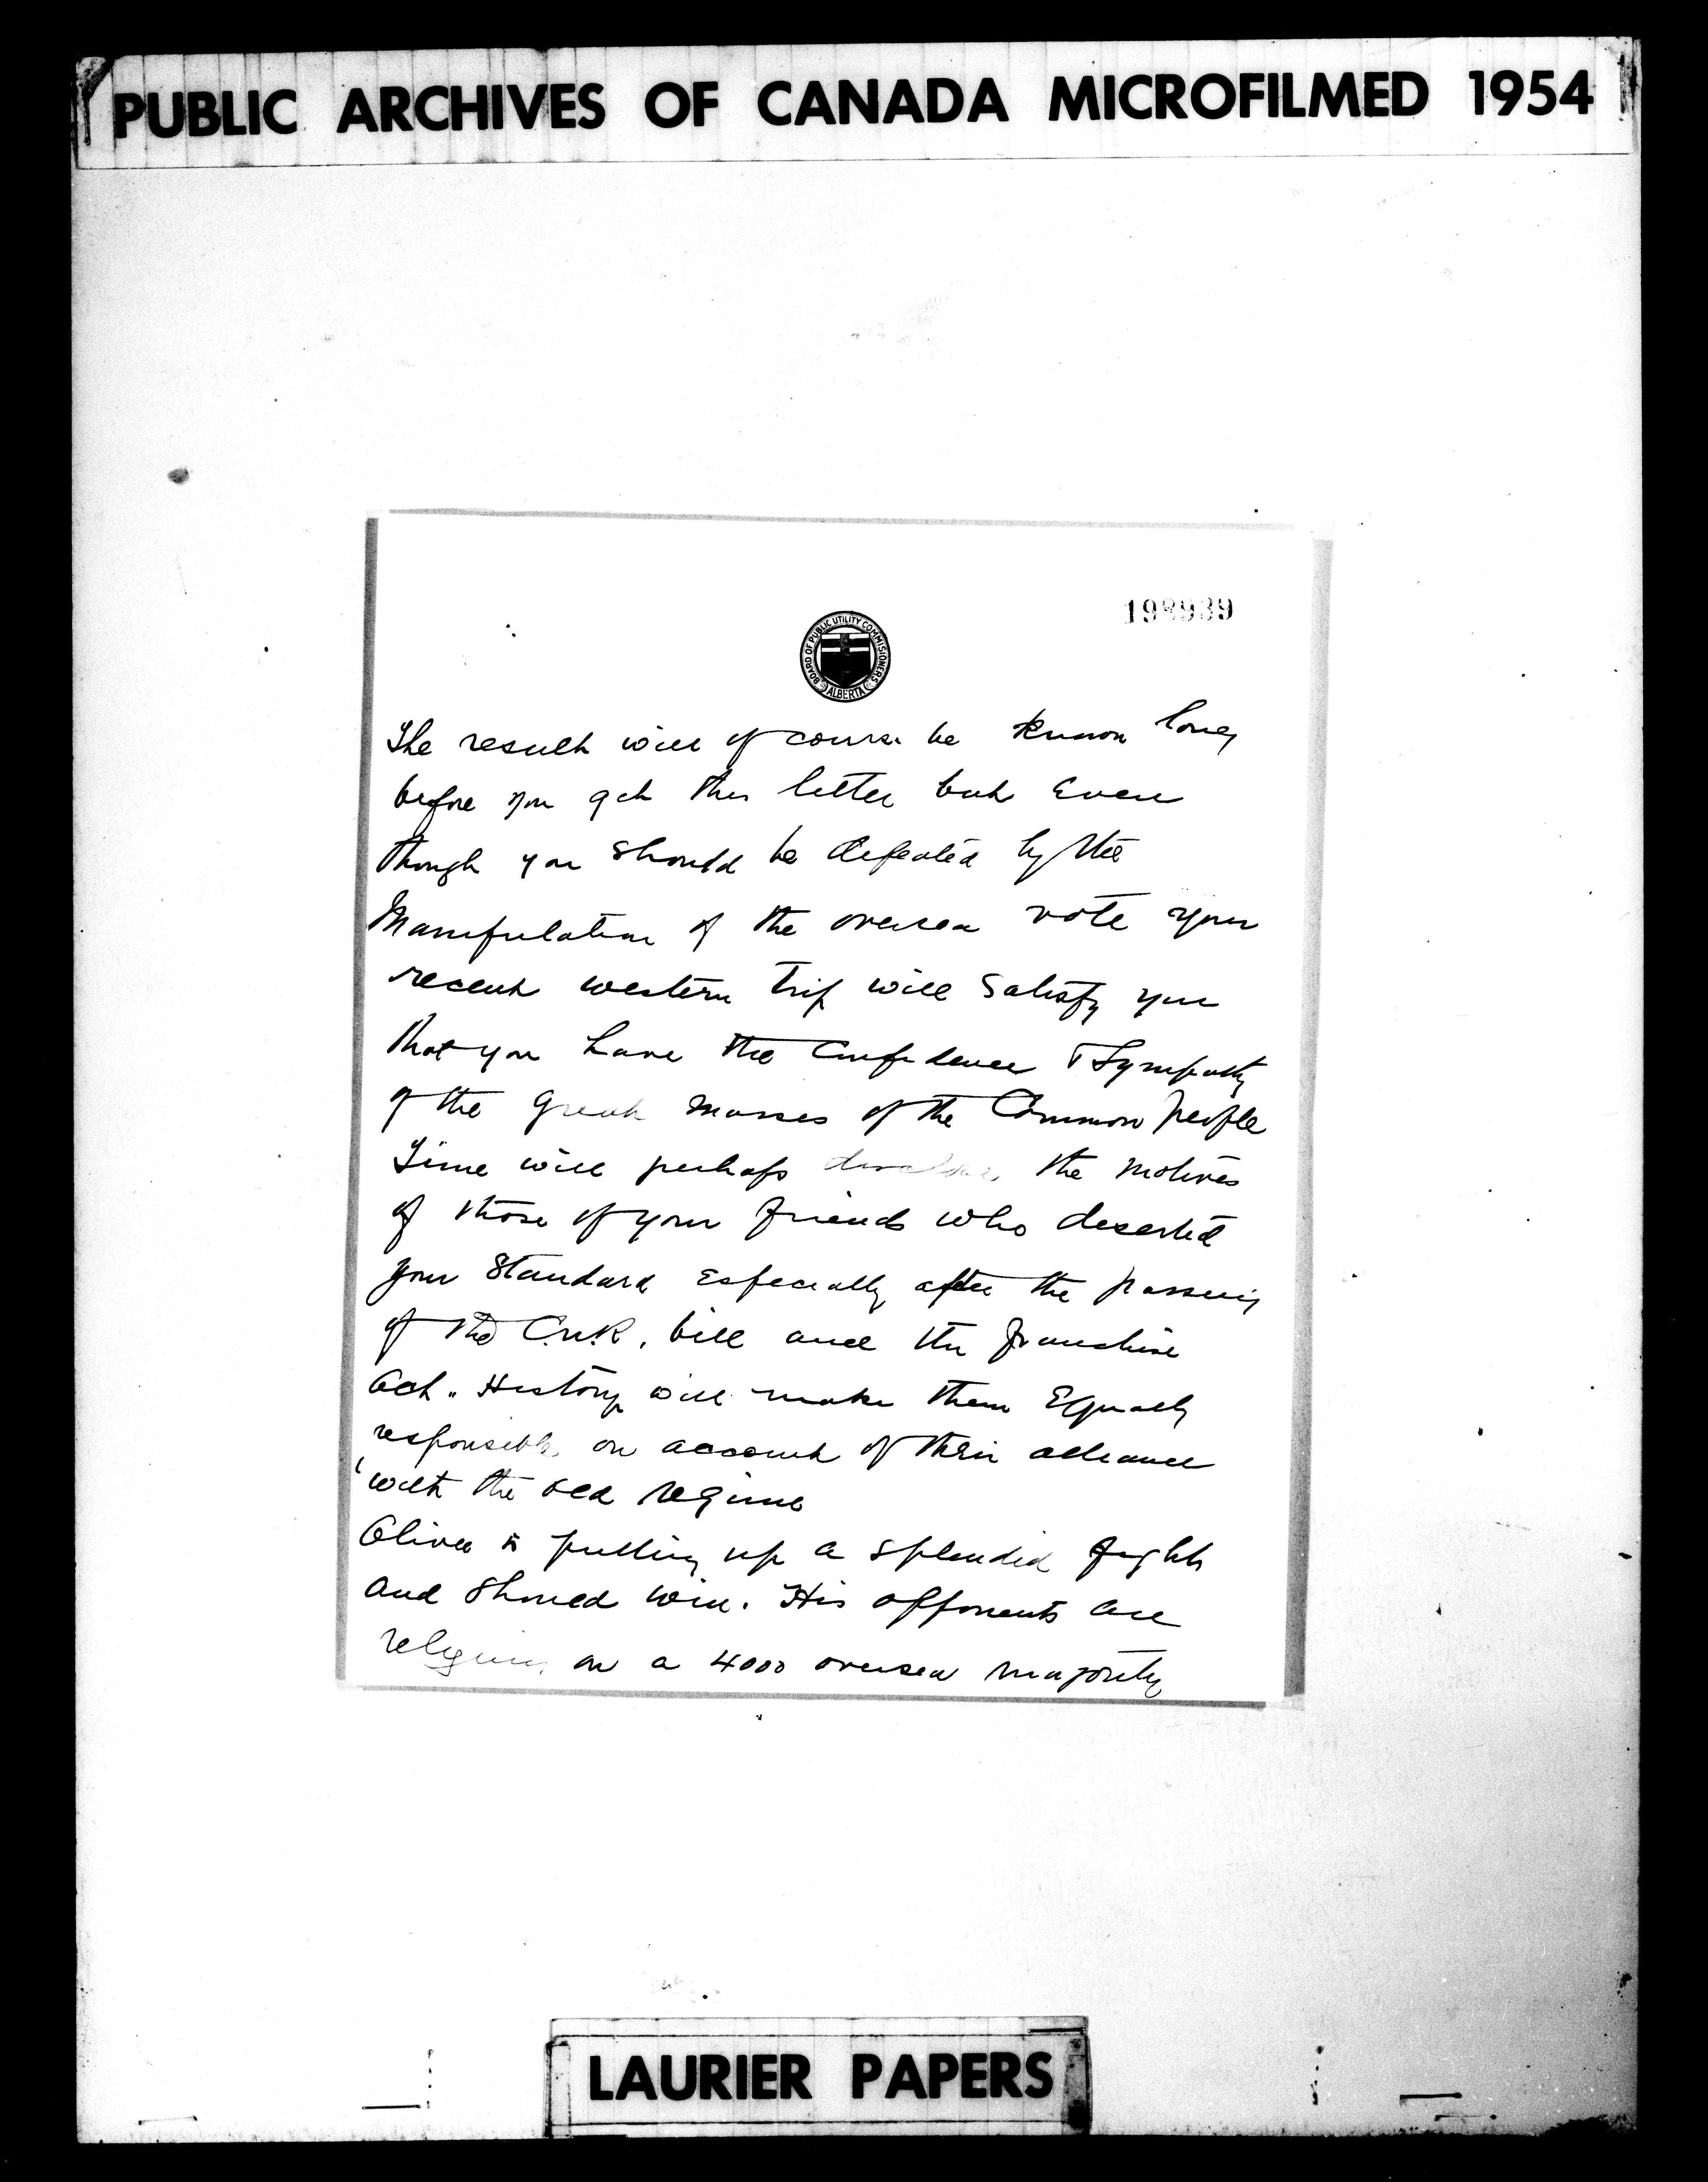 PUBLIC ARCHIVES OF CANADA MICROFILMED 1954
198939
BOARD OF PUBLIC UTILITY COMMISSIONERS
ALBERTA
The result will of course be known long
before you get this letter but even
though you should be defeated by the
Manipulation of the oversea vote your
recent western trip will satisfy you
that you have the confidence & sympathy
of the great masses of the Common people
Time will perhaps disclose the motives
of those of your friends who deserted
your Standard Especially after the passing
of the C.N.R. bill and the franchise
Act. History will make them Equally
responsible on account of their alliance
with the old regime
Oliver is putting up a splendid fight
and should win. His opponents are
relying on a 4000 oversea majority
LAURIER PAPERS